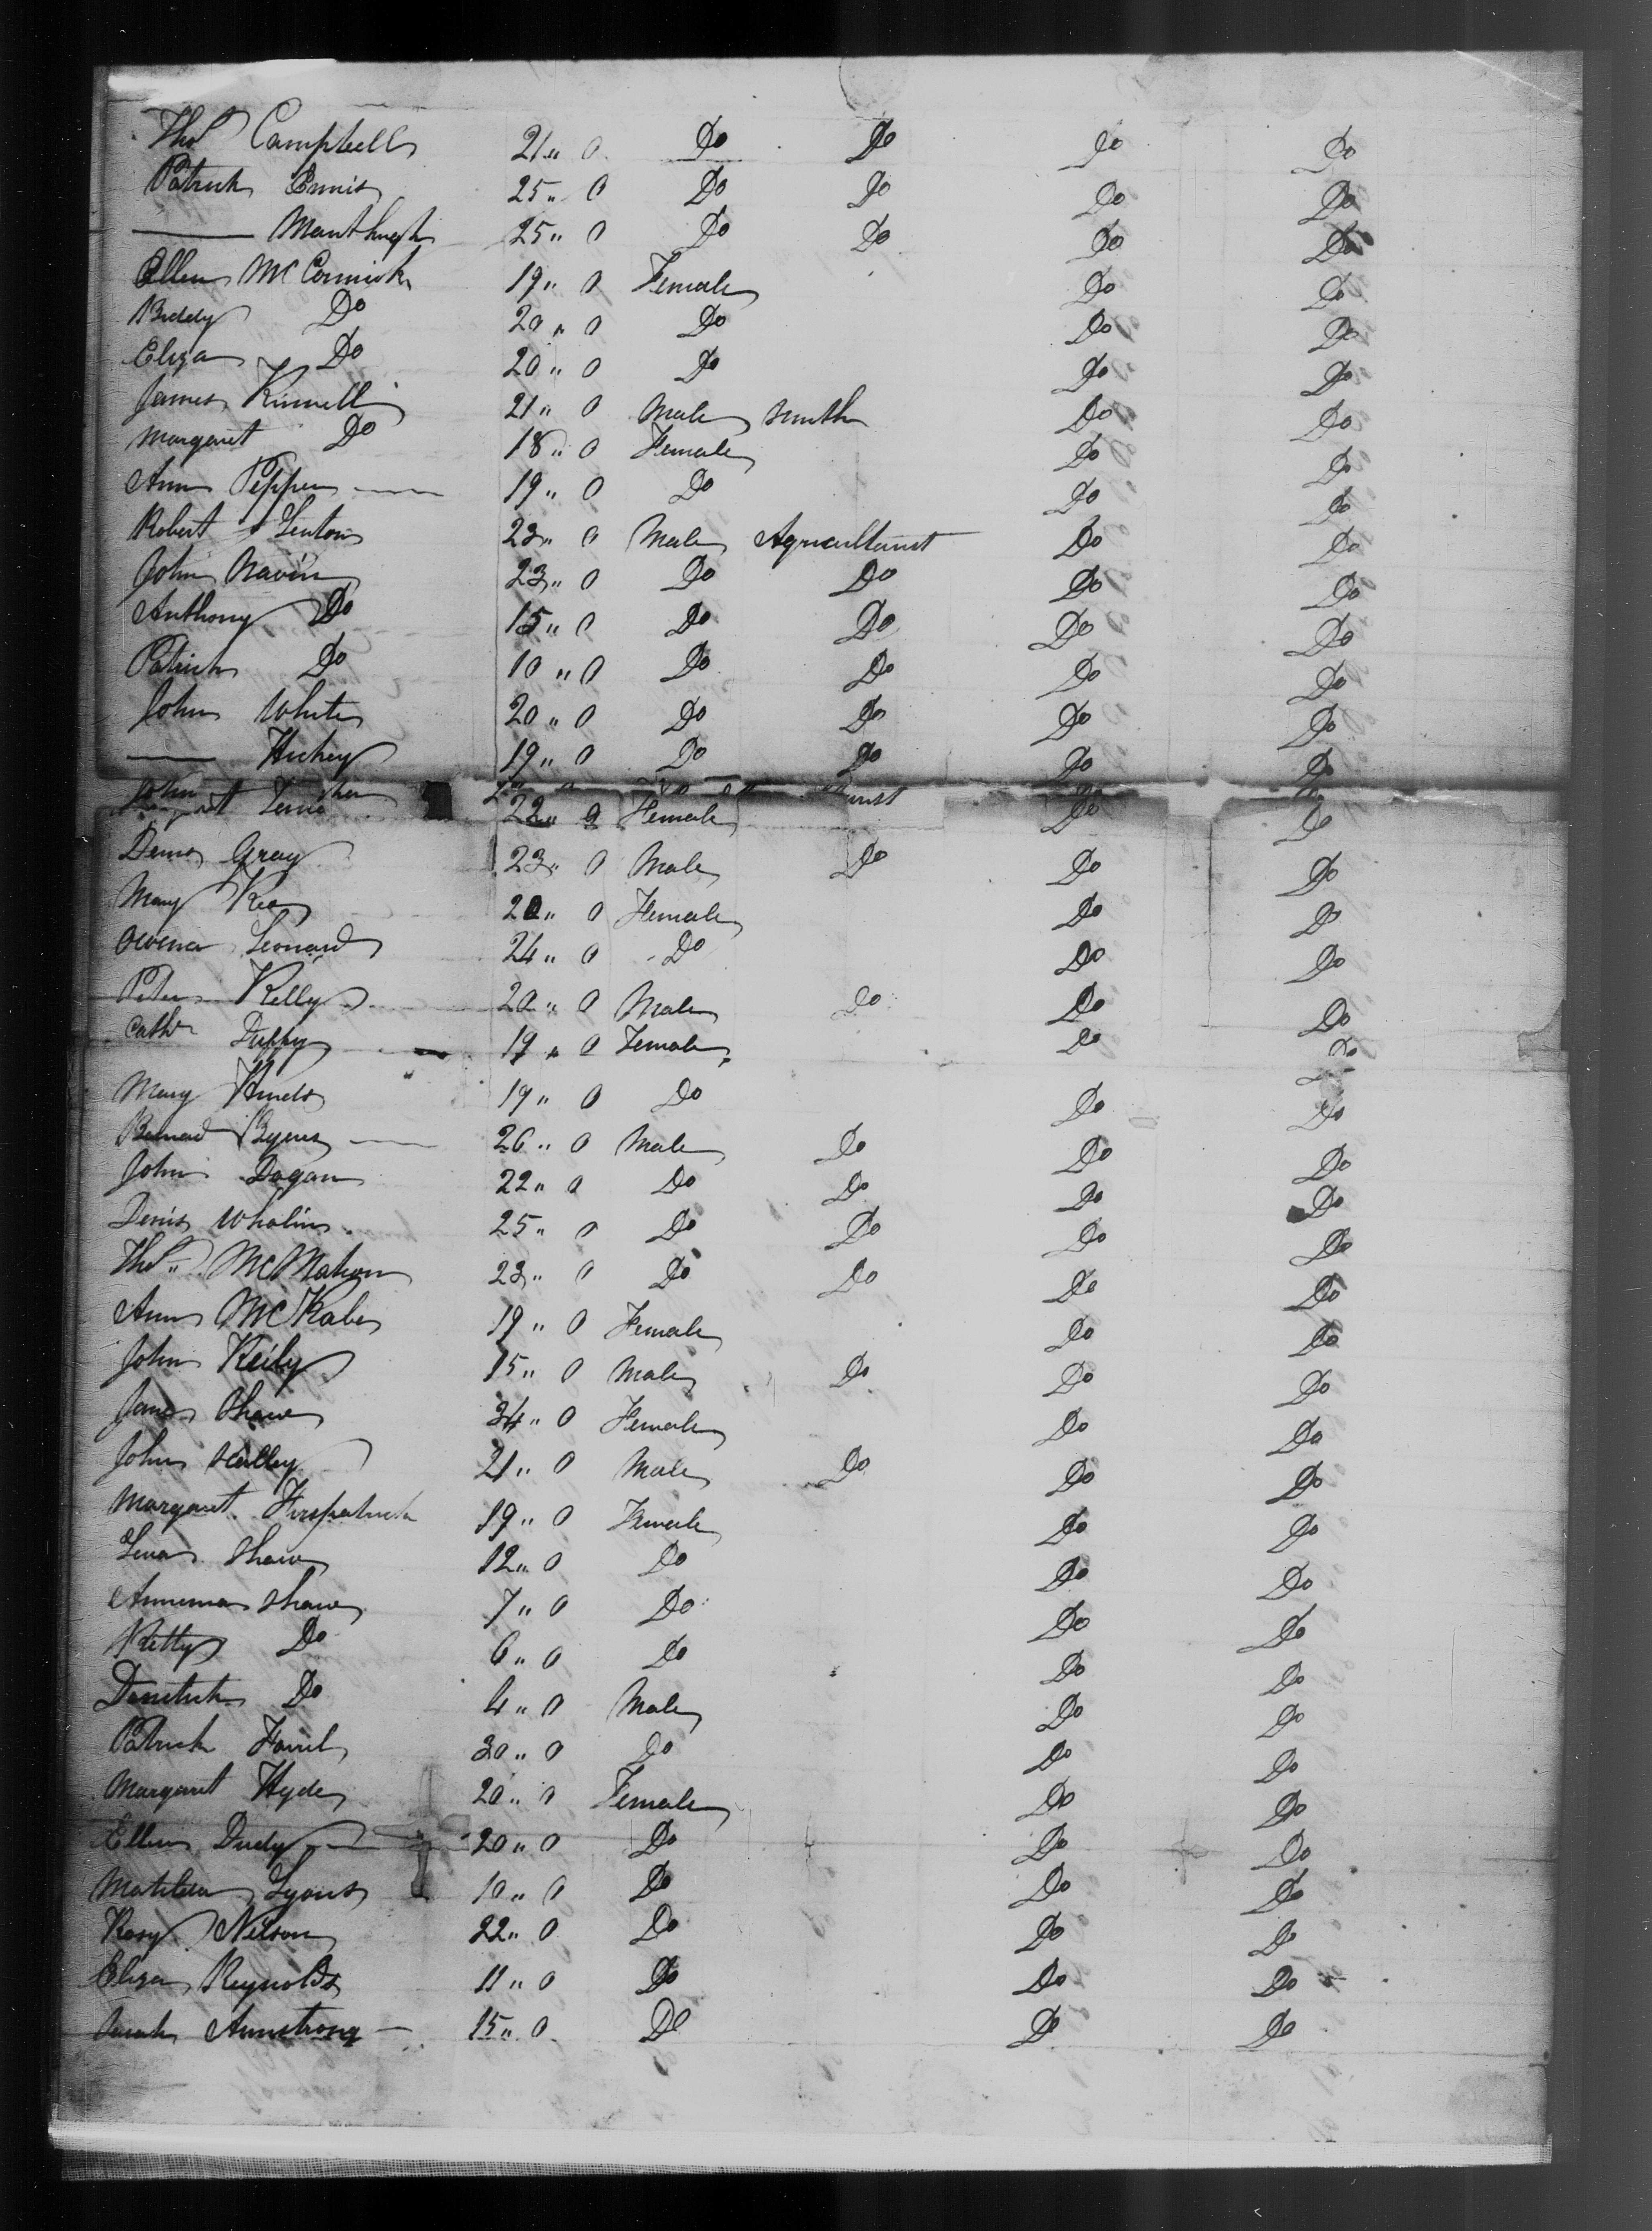 Thos Campbell 21 " 0 Do Do Do Do
Patrick Ennis 25 " 0 Do Do Do Do
—— 25 " 0 Do Do Do Do
Ellen McCormick 19 " 0 Female Do Do
Biddy Do 20 " 0 Do Do Do
Eliza Do 20 " 0 Do Do Do
James Kinnell 21 " 0 Male Smith Do Do
Margaret Do 18 " 0 Female Do Do
Ann Pepper 19 " 0 Do Do Do
Robert 23 " 0 Male Agriculturist Do Do
John Navin 23 " 0 Do Do Do Do
Anthony Do 15 " 0 Do Do Do Do
Patrick Do 10 " 0 Do Do Do Do
John White 20 " 0 Do Do Do Do
—— Hickey 19 " 0 Do Do Do Do
John
22 " 0 Female Do Do
Denis Gray 23 " 0 Male Do Do Do
Mary Kee 20 " 0 Female Do Do
Leonard 24 " 0 Do Do Do
Peter Kelly 20 " 0 Male Do Do Do
Cathr Duffy 19 " 0 Female Do Do
Mary Hinds 19 " 0 Do Do Do
Bernard Byrns 26 " 0 Male Do Do Do
John Dogan 22 " 0 Do Do Do Do
Denis Whalin 25 " 0 Do Do Do Do
Thos McMahon 23 " 0 Do Do Do Do
Ann McKabe 19 " 0 Female Do Do
John Keily 15 " 0 Male Do Do Do
Jane Shaw 34 " 0 Female Do Do
John Kelley 21 " 0 Male Do Do Do
Margaret Firspatrick 19 " 0 Female Do Do
Shaw 12 " 0 Do Do Do
Shaw 7 " 0 Do Do Do
Kitty Do 6 " 0 Do Do Do
Do 4 " 0 Male Do Do
Patrick 30 " 0 Do Do Do
Margaret Hyde 20 " 0 Female Do Do
Ellen 20 " 0 Do Do Do
Matilda Lyons 10 " 0 Do Do Do
Rosy Nilson 22 " 0 Do Do Do
Eliza Reynolds 11 " 0 Do Do Do
Sarah Armstrong 15 " 0 Do Do Do